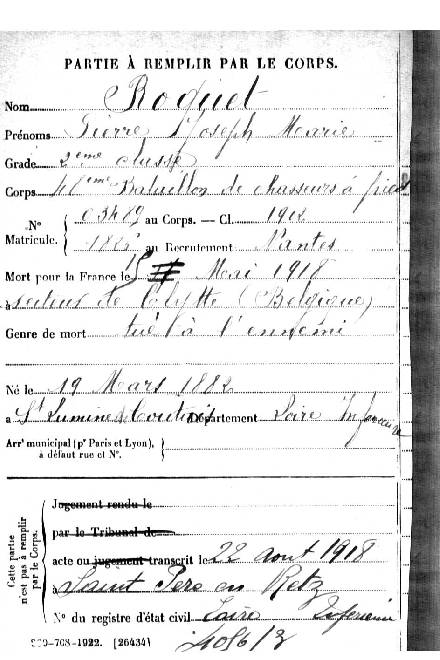 PARTIE À REMPLIR PAR LE CORPS.
Nom Roquet
Prénoms Pierre Joseph Marie
Grade 2eme classe
Corps 48eme Bataillon de chasseurs à pied
N° Matricule. 03489 au Corps. — Cl. 1912
au Recrutement Nantes
Mort pour la France le 15 Mai 1918
à secteur de (Belgique)
Genre de mort tué à l'ennemi
Né le 19 Mars 1882
a St Lumine de Coutais Département Loire Inférieure
Arrt municipal (pr Paris et Lyon), à défaut rue et N°.
Cette partie n'est pas à remplir par le Corps.
Jugement rendu le
par le Tribunal de
acte ou jugement transcrit le 22 aout 1918
à Saint Père en Retz
N° du registre d'état civil Loire Inférieure
[26434]